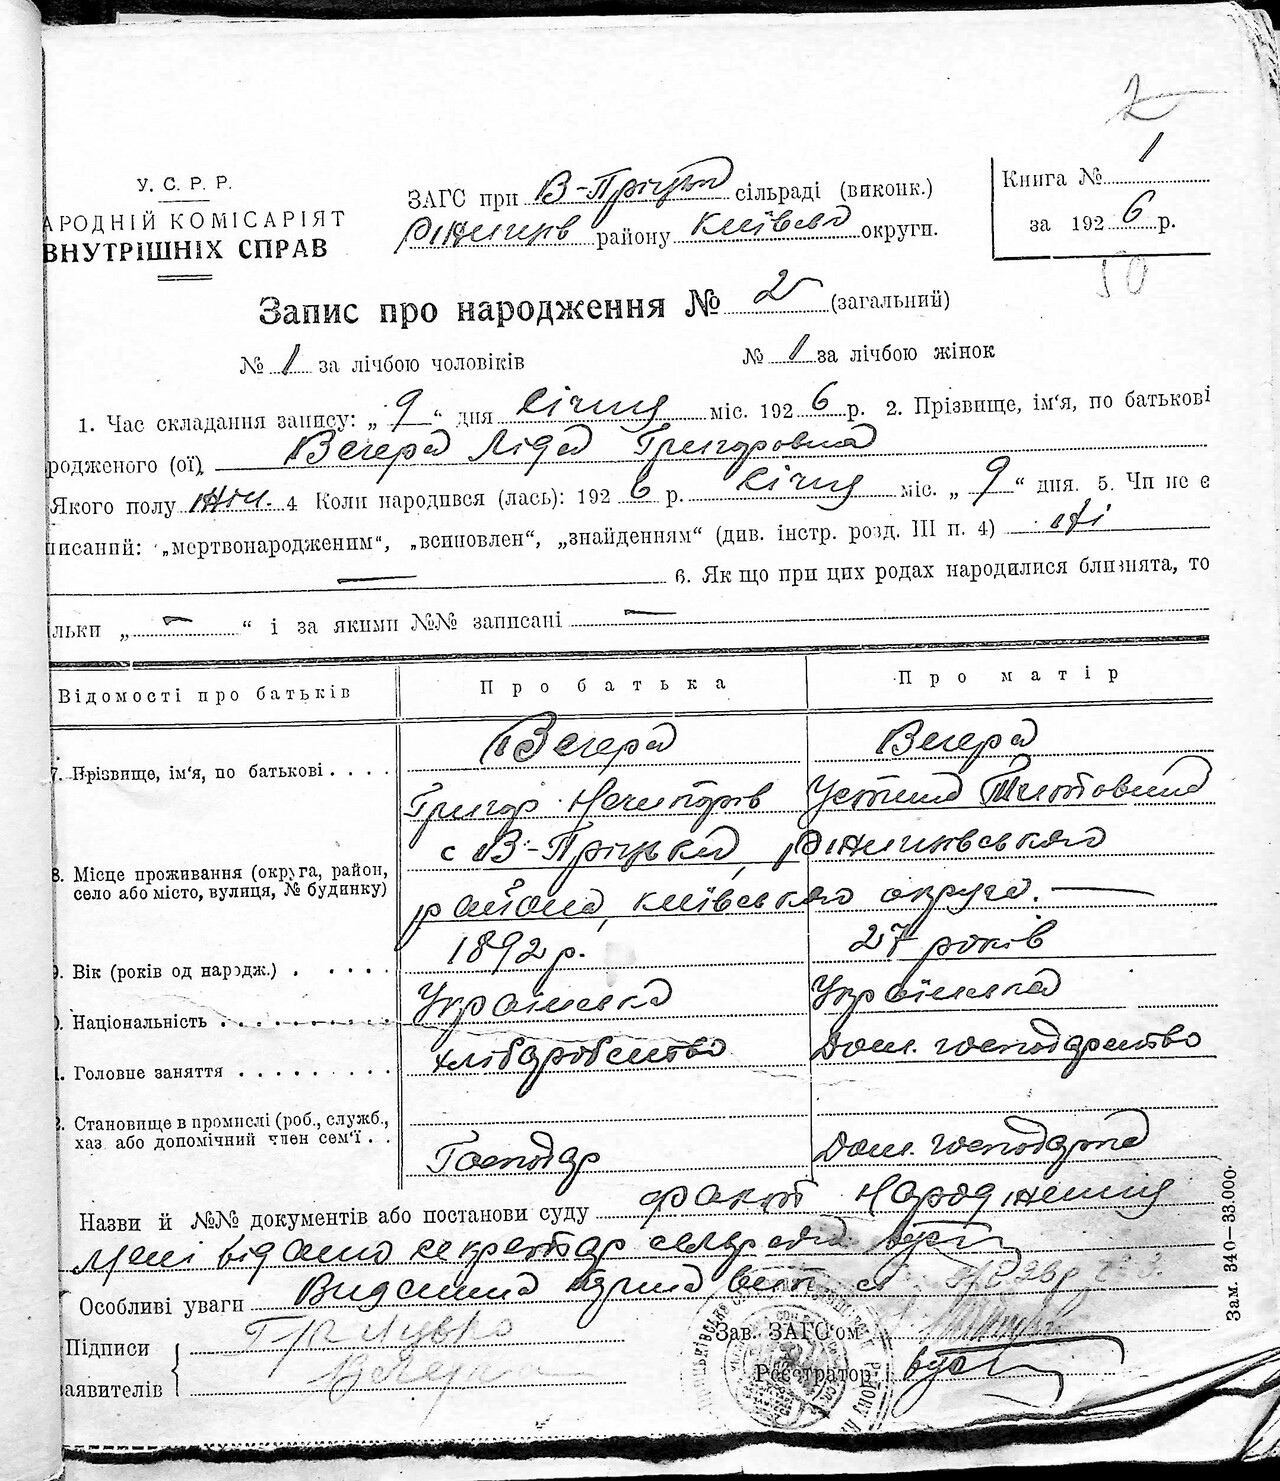 2
У. С. Р. Р.
АРОДНІЙ КОМІСАРІЯТ
ВНУТРІШНІХ СПРАВ
ЗАГС при В-Пріцька сільраді (виконк.)
Ржищів району Київсько округи.
Книга № 1
за 1926 р.
50
Запис про народження № 2 (загальний)
№ 1 за лічбою чоловіків № 1 за лічбою жінок
1. Час складання запису: „ 9 “ дня Січня міс. 1926 р. 2. Прізвище, ім'я, по батькові
родженого (ої) Вечера Ліда Григоровна
Якого полу жін. 4 Коли народився (лась): 1926 р. Січня міс. „ 9 “ дня. 5. Чи не є
писаний: „мертвонародженим“, „всиновлен“, „знайденням“ (див. інстр. розд. III п. 4) ні
— 6. Як що при цих родах народилися близнята, то
льки „ — “ і за якими №№ записані —
Відомості про батьків
Про батька
Про матір
7. Прізвище, ім'я, по батькові . . . .
Вечера
Григор Нечипорів
Вечера
Устина Титовна
8. Місце проживання (округа, район,
село або місто, вулиця, № будинку)
с В-Пріцька, Ржищівського
района, київського округа. —
9. Вік (років од народж.) . . . . .
1892 р.
27 років
Національність . . . . . . . . .
Українська
Українська
1. Головне заняття . . . . . . . . .
хліборобство
Дом. господарство
2. Становище в промислі (роб., служб.,
хаз. або допомічний член сем'ї . .
Господар
Дом. господарка
Назви й №№ документів або постанови суду факт народження
мені відомо секретар сельради
Особливі уваги Видана
Підписи
аявителів
Григор
Вечера
Зав. ЗАГС'ом
Реєстратор
Зам. 340—33.000.